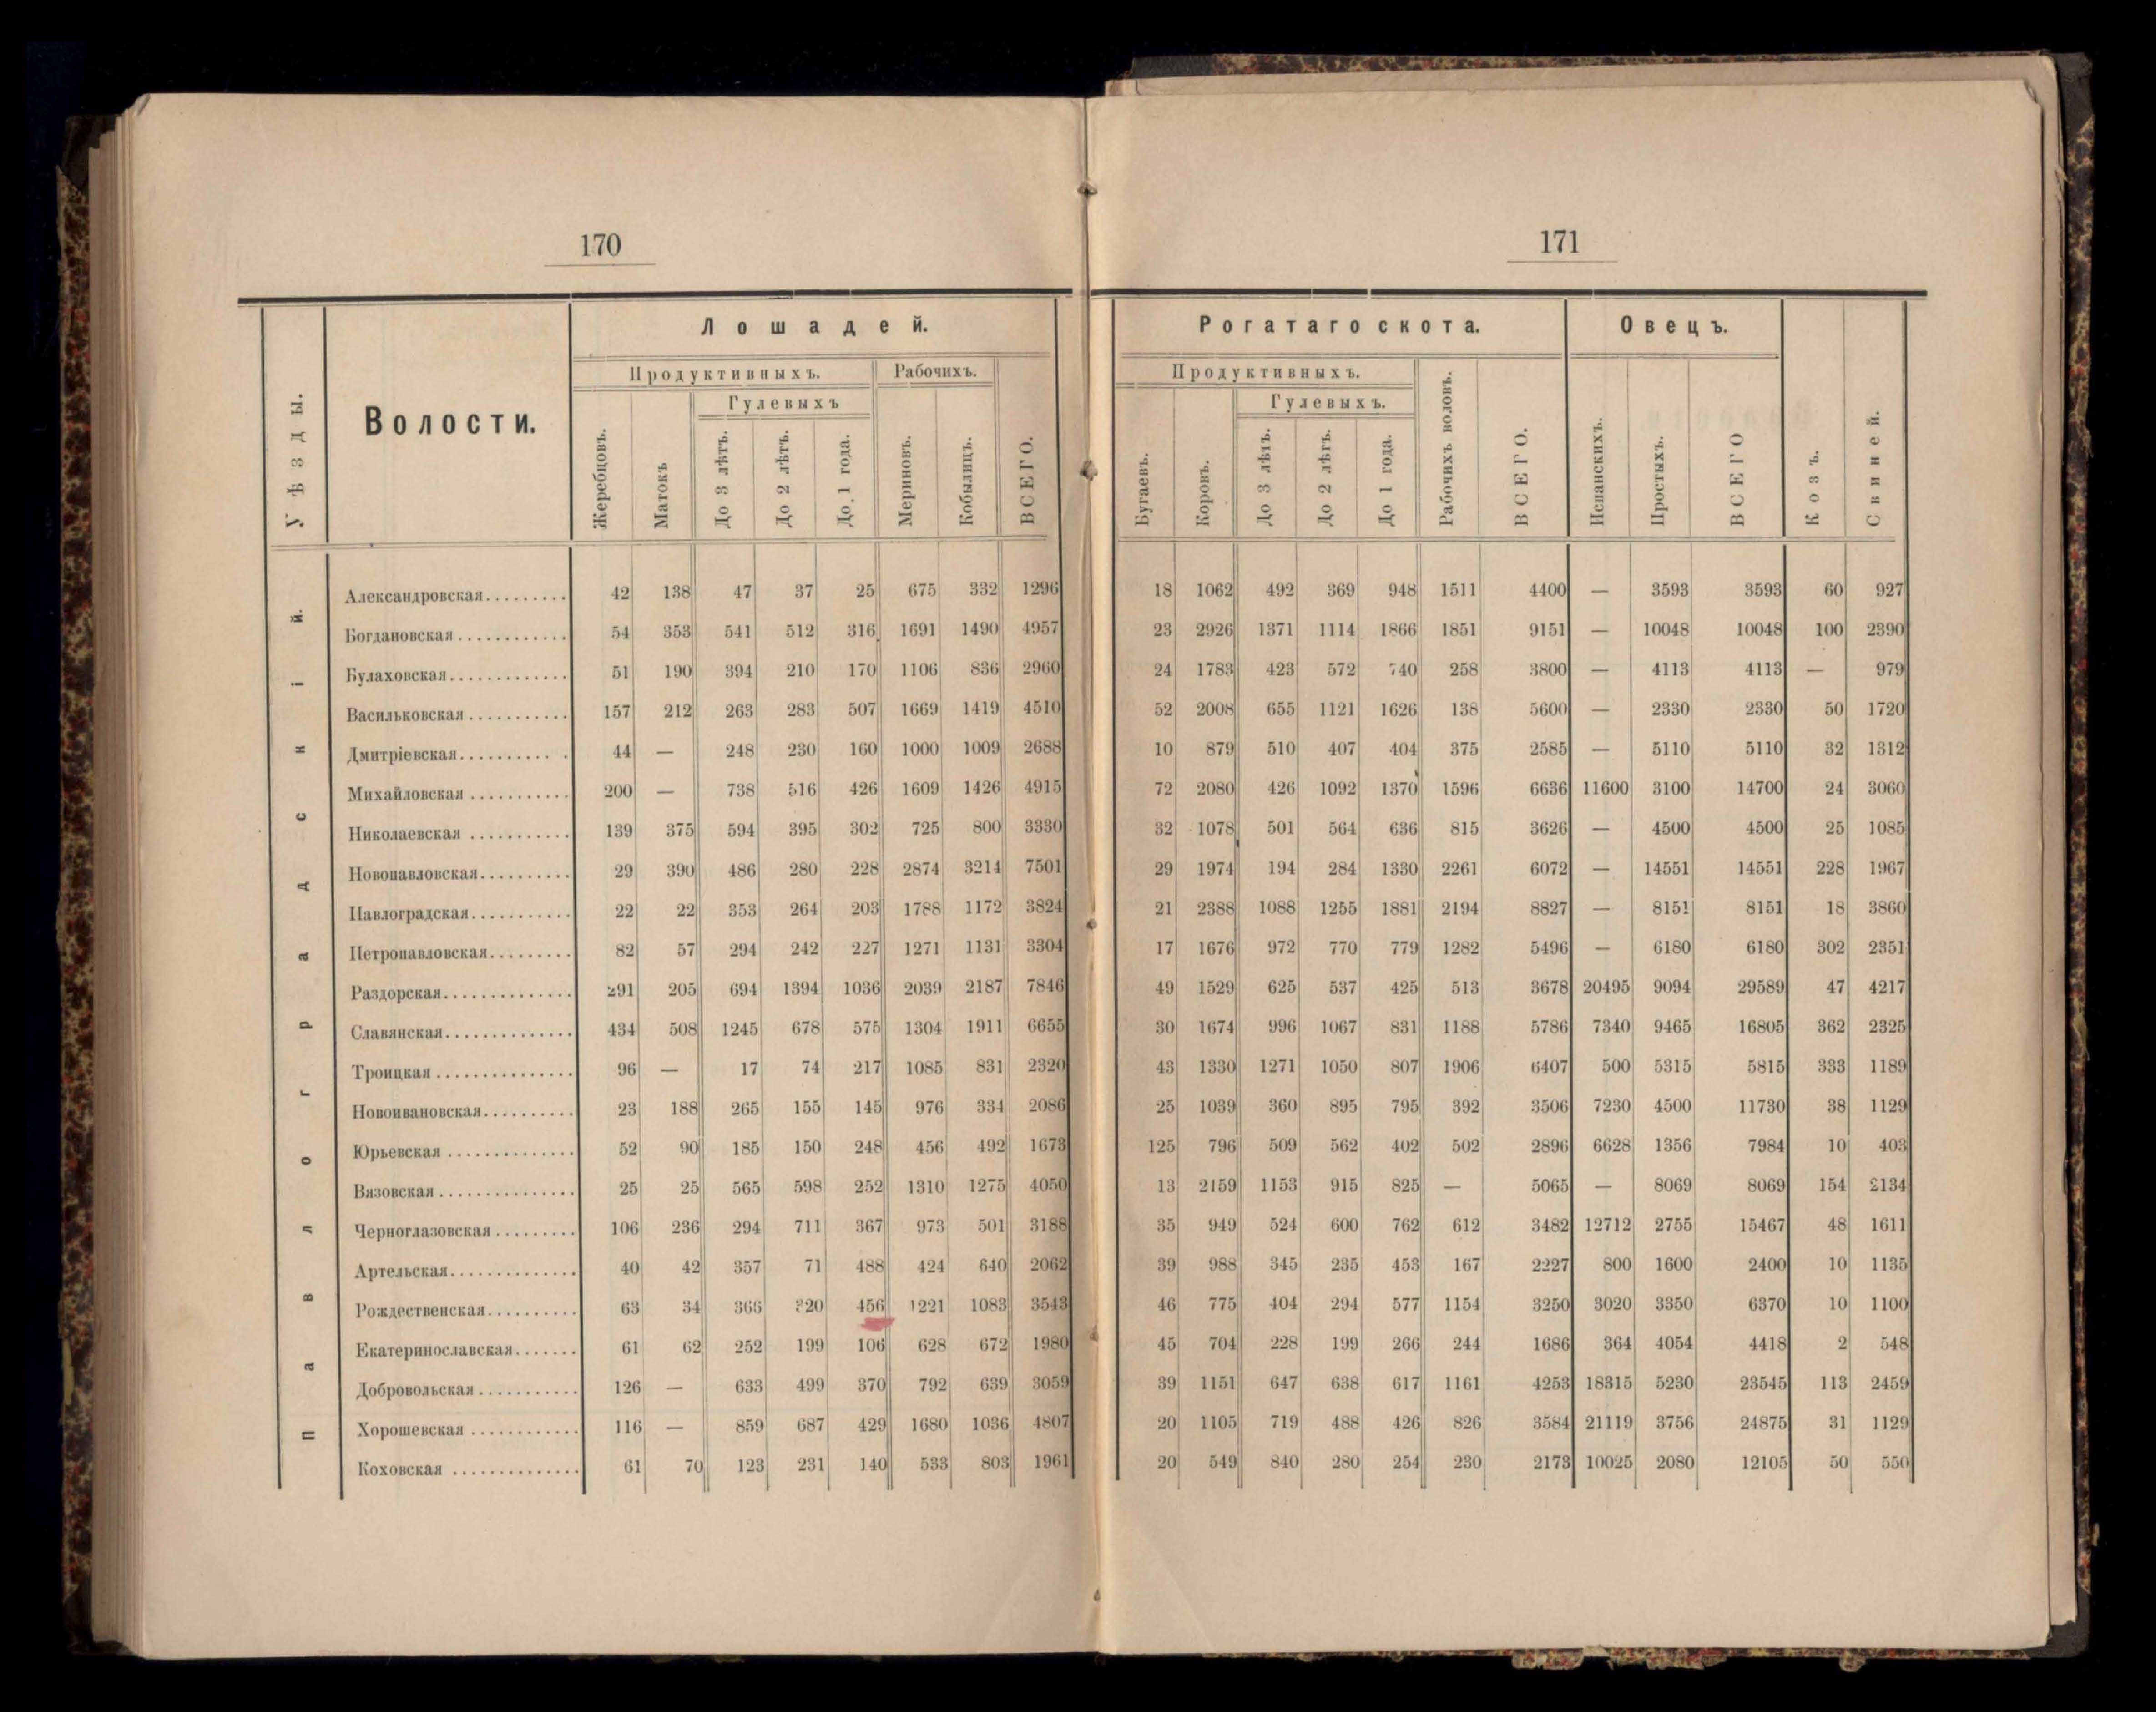 170
Лошадей.
Продуктивныхъ.
Рабочихъ.
Гулевыхъ
Уѣзды.
Волости.
Жеребцовъ.
Матокъ
До 3 лѣтъ.
До 2 лѣтъ.
До 1 года.
Мериновъ.
Кобылицъ.
ВСЕГО.
Павлоградскій.
Александровская......... 42 138 47 37 25 675 332 1296
Богдановская............ 54 353 541 512 316 1691 1490 4957
Булаховская............. 51 190 394 210 170 1106 836 2960
Васильковская........... 157 212 263 283 507 1669 1419 4510
Дмитріевская.......... . 44 — 248 230 160 1000 1009 2688
Михайловская........... 200 — 738 516 426 1609 1426 4915
Николаевская........... 139 375 594 395 302 725 800 3330
Новопавловская.......... 29 390 486 280 228 2874 3214 7501
Павлоградская........... 22 22 353 264 203 1788 1172 3824
Петропавловская......... 82 57 294 242 227 1271 1131 3304
Раздорская.............. 291 205 694 1394 1036 2039 2187 7846
Славянская.............. 434 508 1245 678 575 1304 1911 6655
Троицкая............... 96 — 17 74 217 1085 831 2320
Новоивановская.......... 23 188 265 155 145 976 334 2086
Юрьевская.............. 52 90 185 150 248 456 492 1673
Вязовская............... 25 25 565 598 252 1310 1275 4050
Черноглазовская......... 106 236 294 711 367 973 501 3188
Артельская.............. 40 42 357 71 488 424 640 2062
Рождественская.......... 63 34 366 320 456 1221 1083 3543
Екатеринославская....... 61 62 252 199 106 628 672 1980
Добровольская........... 126 — 633 499 370 792 639 3059
Хорошевская............ 116 — 859 687 429 1680 1036 4807
Коховская.............. 61 70 123 231 140 533 803 1961
171
Рогатаго скота.
Овецъ.
Продуктивныхъ.
Гулевыхъ.
Бугаевъ.
Коровъ.
До 3 лѣтъ.
До 2 лѣтъ.
До 1 года.
Рабочихъ воловъ.
ВСЕГО.
Испанскихъ.
Простыхъ.
ВСЕГО
Козъ.
Свиней.
18 1062 492 369 948 1511 4400 — 3593 3593 60 927
23 2926 1371 1114 1866 1851 9151 — 10048 10048 100 2390
24 1783 423 572 740 258 3800 — 4113 4113 — 979
52 2008 655 1121 1626 138 5600 — 2330 2330 50 1720
10 879 510 407 404 375 2585 — 5110 5110 32 1312
72 2080 426 1092 1370 1596 6636 11600 3100 14700 24 3060
32 1078 501 564 636 815 3626 — 4500 4500 25 1085
29 1974 194 284 1330 2261 6072 — 14551 14551 228 1967
21 2388 1088 1255 1881 2194 8827 — 8151 8151 18 3860
17 1676 972 770 779 1282 5496 — 6180 6180 302 2351
49 1529 625 537 425 513 3678 20495 9094 29589 47 4217
30 1674 996 1067 831 1188 5786 7340 9465 16805 362 2325
43 1330 1271 1050 807 1906 6407 500 5315 5815 333 1189
25 1039 360 895 795 392 3506 7230 4500 11730 38 1129
125 796 509 562 402 502 2896 6628 1356 7984 10 403
13 2159 1153 915 825 — 5065 — 8069 8069 154 2134
35 949 524 600 762 612 3482 12712 2755 15467 48 1611
39 988 345 235 453 167 2227 800 1600 2400 10 1135
46 775 404 294 577 1154 3250 3020 3350 6370 10 1100
45 704 228 199 266 244 1686 364 4054 4418 2 548
39 1151 647 638 617 1161 4253 18315 5230 23545 113 2459
20 1105 719 488 426 826 3584 21119 3756 24875 31 1129
20 549 840 280 254 230 2173 10025 2080 12105 50 550